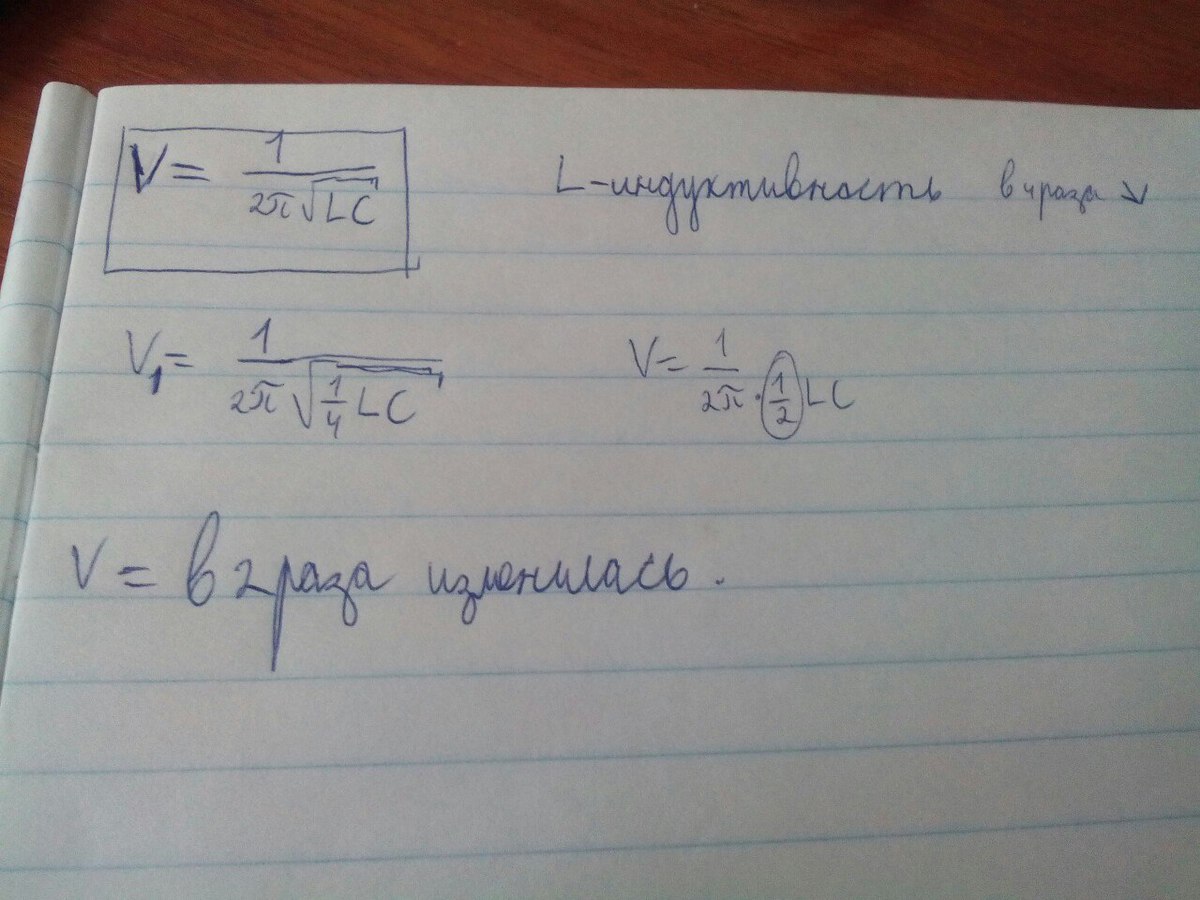 V = 1 / 2π√LC L-индуктивность в 4 раза ↘
V₁ = 1 / 2π√(1/4 LC) V = 1 / 2π · 1/2 LC
V = в 2 раза изменилась.